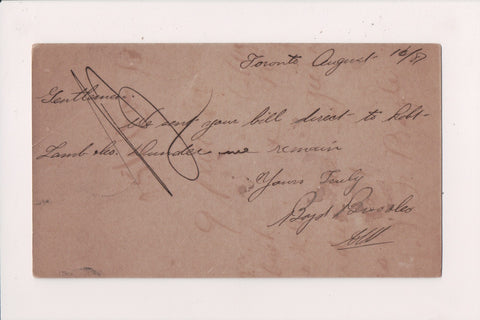 Toronto August 16/87
Gentlemen.
We sent your bill direct to Robt
Lamb &co. Dundas we remain
Yours Truly
Boyd Bros &co